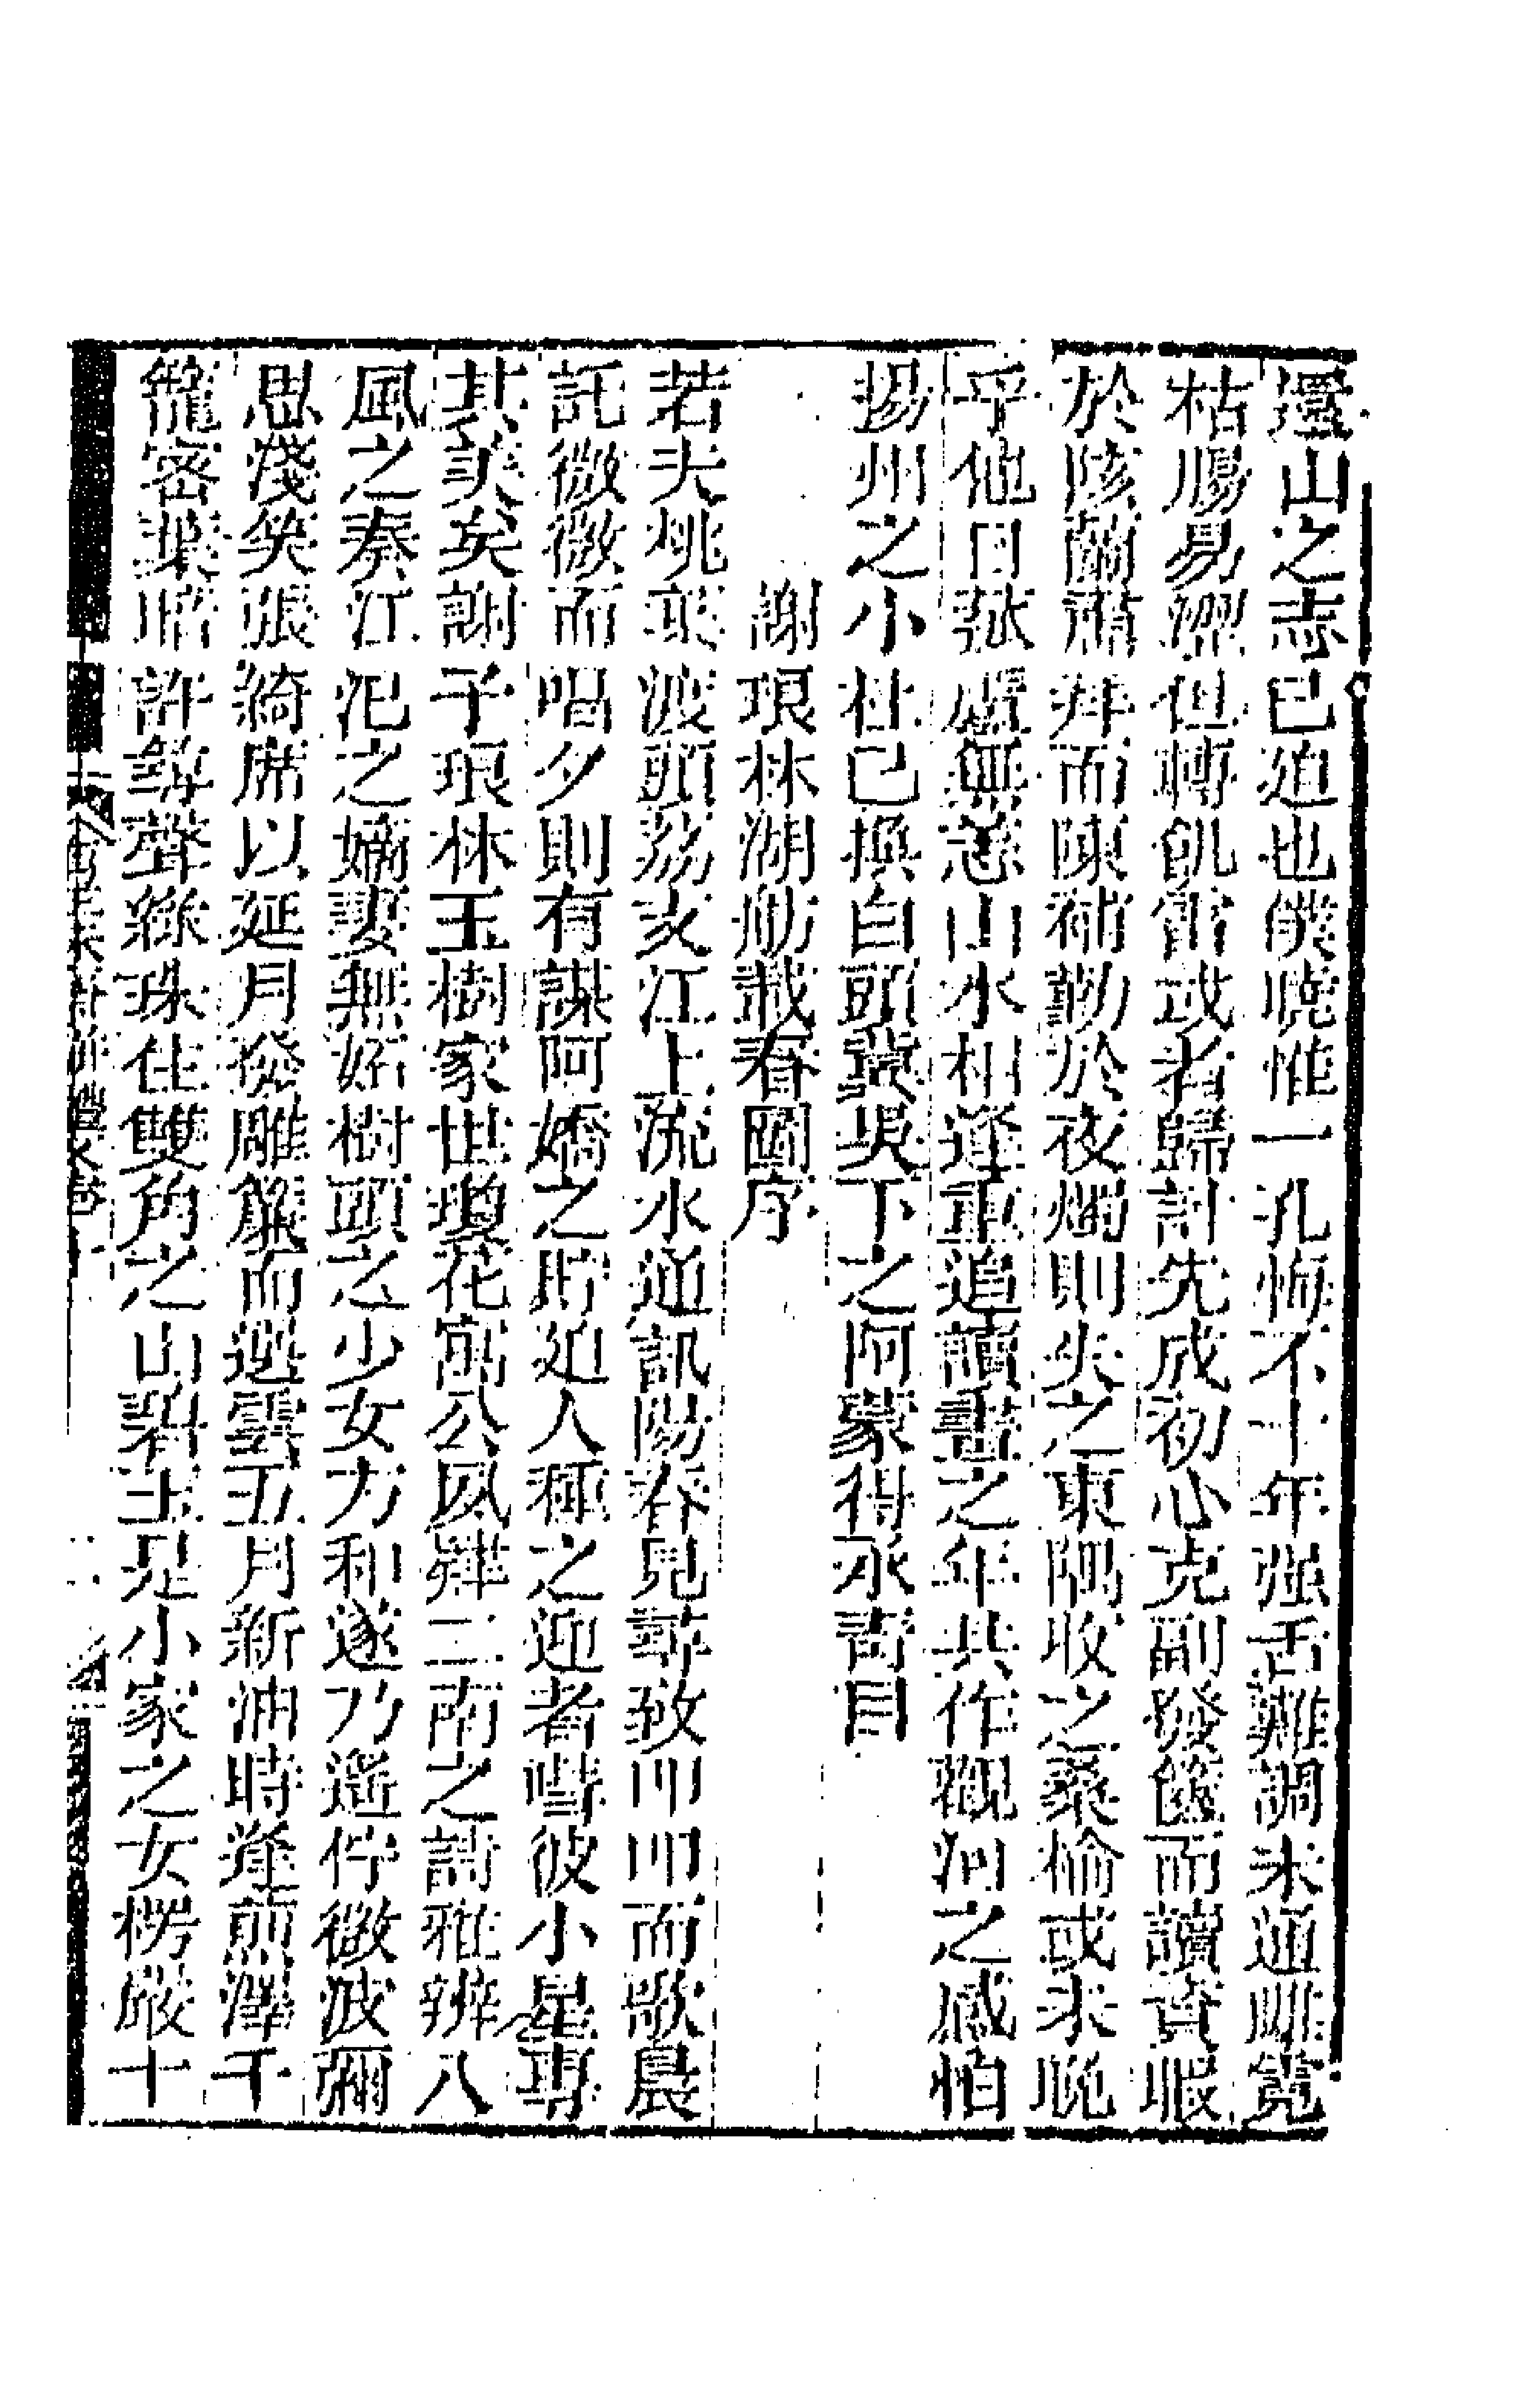 還山之志已迫也僕曉惟一孔悔不十年强舌難調米通雖寬
枯腸易澀但轉飢雷或者歸計先成初心克副發篋而讀資暇
於陔蘭肅拜而陳補勤於夜燭則失之東隅收之桑榆或未晚
乎他日狐虛無恙山水相逢重追讀書之年共作觀河之感怕
揚州之小杜已換白頭冀吳下之阿蒙得承青目
謝琅林湖舫載春圖序
若夫桃葉渡頭荔支江上流水通訊陽春見尋致卬卬而歌晨
託微微而唱夕則有謀阿嬌之貯迎人種之迎者嘒彼小星專
其美矣謝子琅林玉樹家世瓊花寓公夙辨二南之詩雅辨八
風之奏江汜之嫡婁無妬樹頭之少女方和遂乃遥佇微波彌
思淺笑張綺席以延月發雕簾而邀雲五月新油時逢煎澤千
籠密葉昭許辭聲綠珠住雙角之山碧玉是小家之女楞嚴十